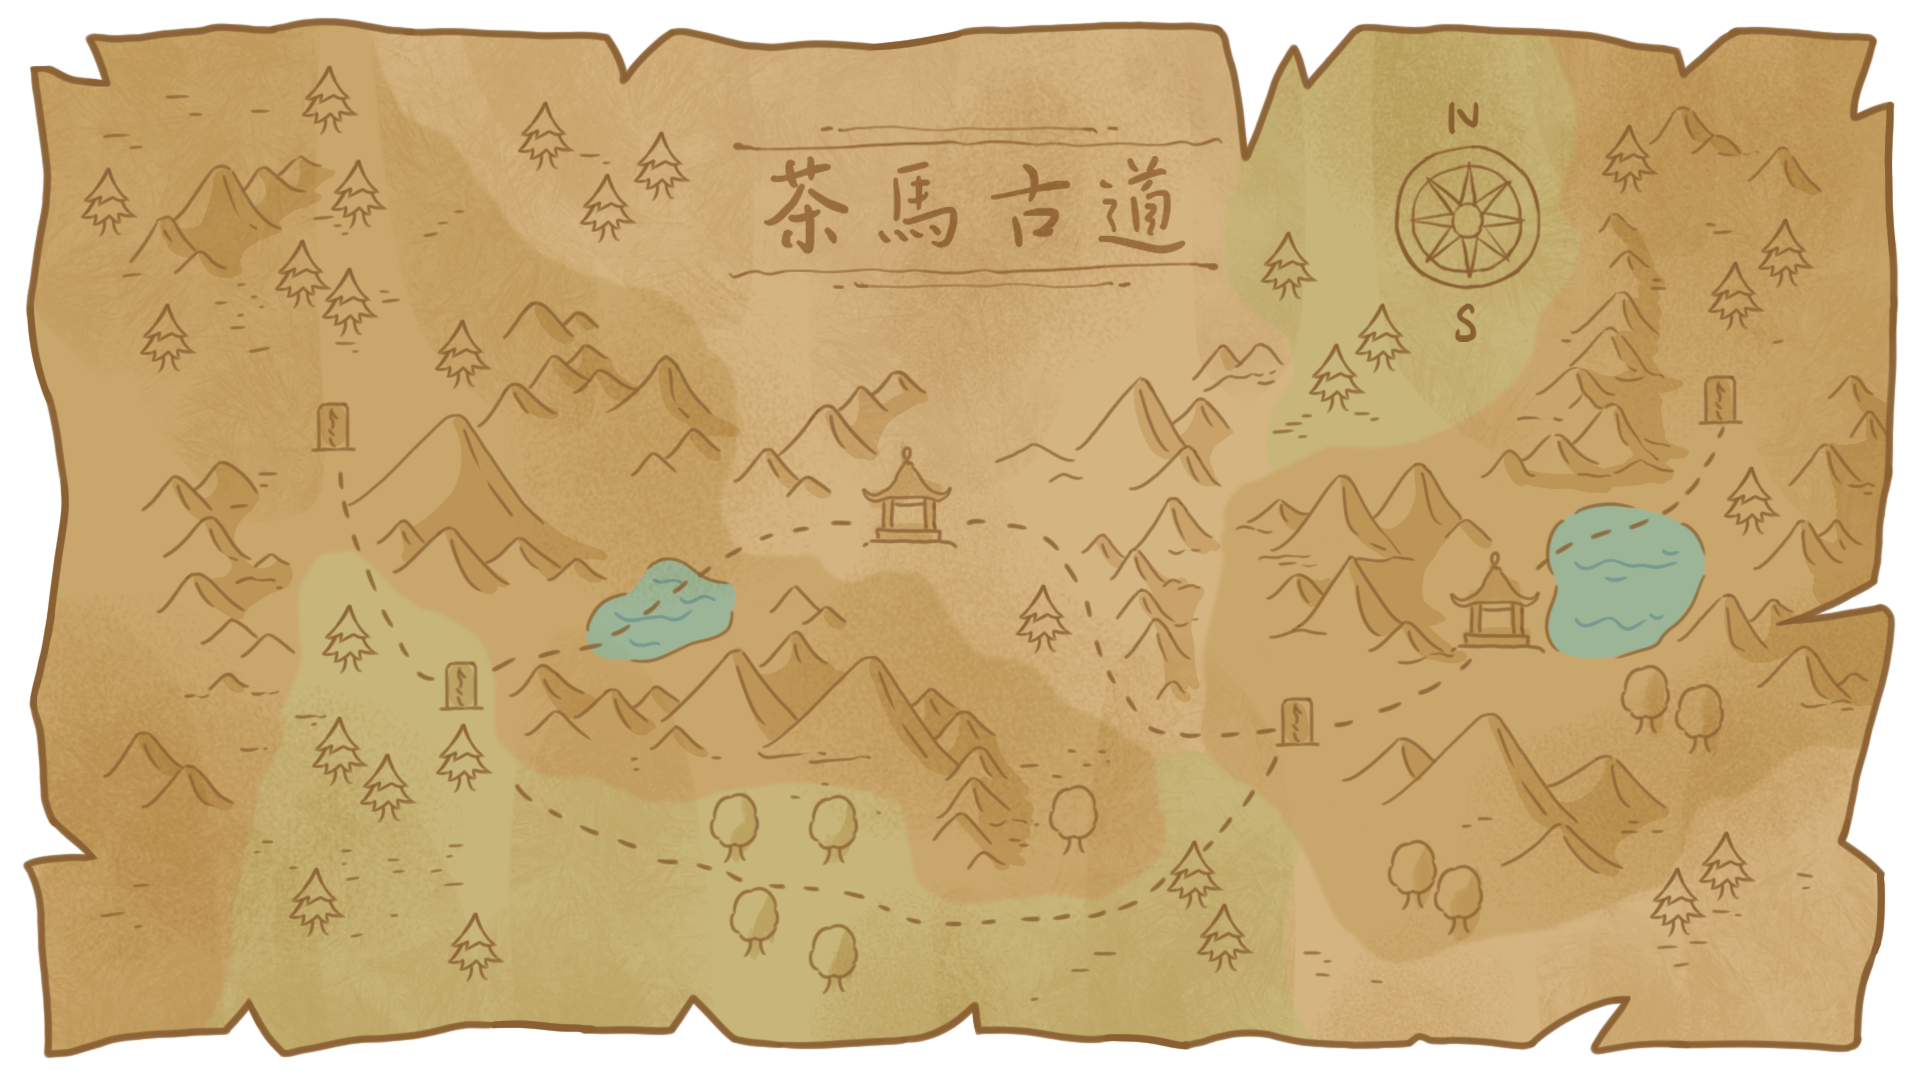 茶馬古道
N
S